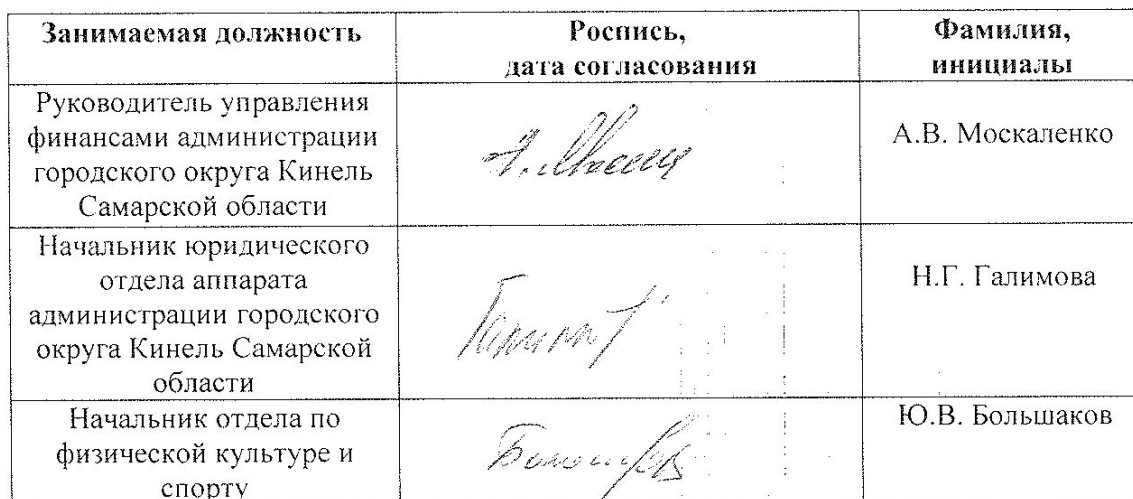 Занимаемая должность
Роспись,
дата согласования
Фамилия,
инициалы
Руководитель управления
финансами администрации
городского округа Кинель
Самарской области
А.В. Москаленко
Начальник юридического
отдела аппарата
администрации городского
округа Кинель Самарской
области
Н.Г. Галимова
Начальник отдела по
физической культуре и
спорту
Ю.В. Большаков